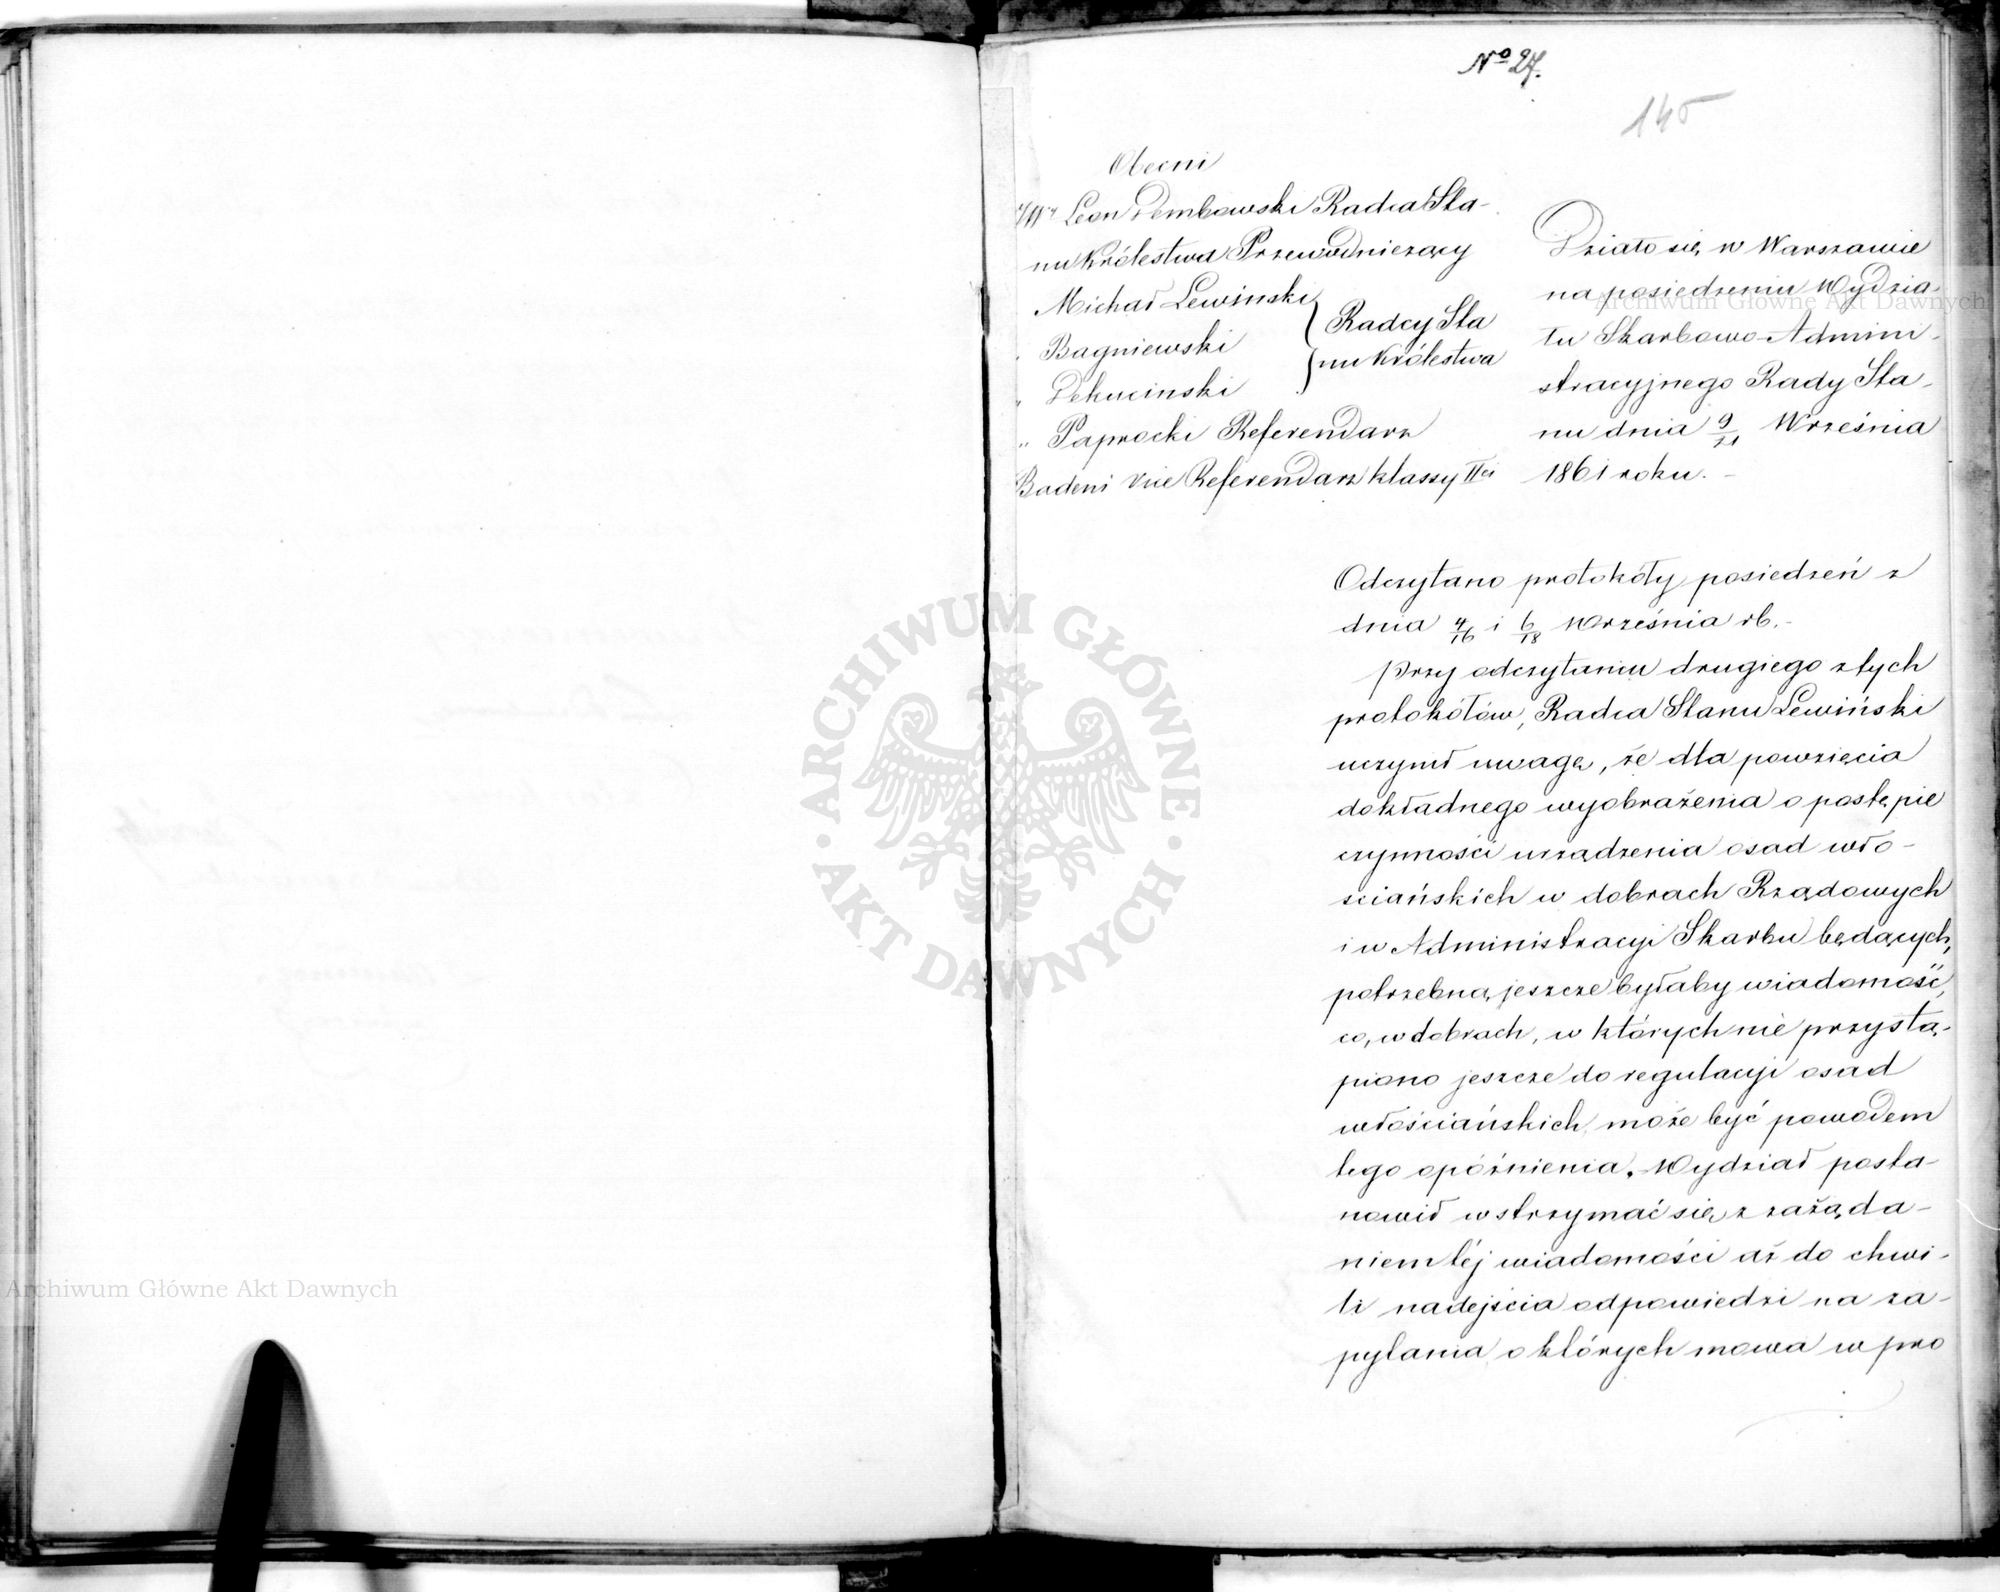 No 27.
145
Obecni
JW Leon Dembowski Radca Sta-
nu Królestwa Przewodniczący
Michał Lewinski
" Bagniewski
" Dekucinski
Radcy Sta
nu Królestwa
" Paprocki Referendarz
Badeni Vice Referendarz klassy IIej
Działo się w Warszawie
na posiedzeniu Wydzia-
łu Skarbowo-Admini-
stracyjnego Rady Sta-
nu dnia 9/21 Września
1861 roku. -
Odczytano protokóły posiedzeń z
dnia 4/16 i 6/18 Września rb. -
Przy odczytaniu drugiego z tych
protokółów, Radca Stanu Lewiński
uczynił uwagę, że dla powzięcia
dokładnego wyobrażenia o postępie
czynności urządzenia osad wło-
ściańskich w dobrach Rządowych
i w Administracyi Skarbu będących,
potrzebną jeszcze byłaby wiadomość,
co, w dobrach, w których nie przystą-
piono jeszcze do regulacyi osad
włościańskich, może być powodem
tego opóźnienia. Wydział posta-
nowił wstrzymać się z zażąda-
niem téj wiadomości aż do chwi-
li nadejścia odpowiedzi na za-
pytania o których mowa w pro
Archiwum Główne Akt Dawnych
Archiwum Główne Akt Dawnych
ARCHIWUM GŁÓWNE
AKT DAWNYCH